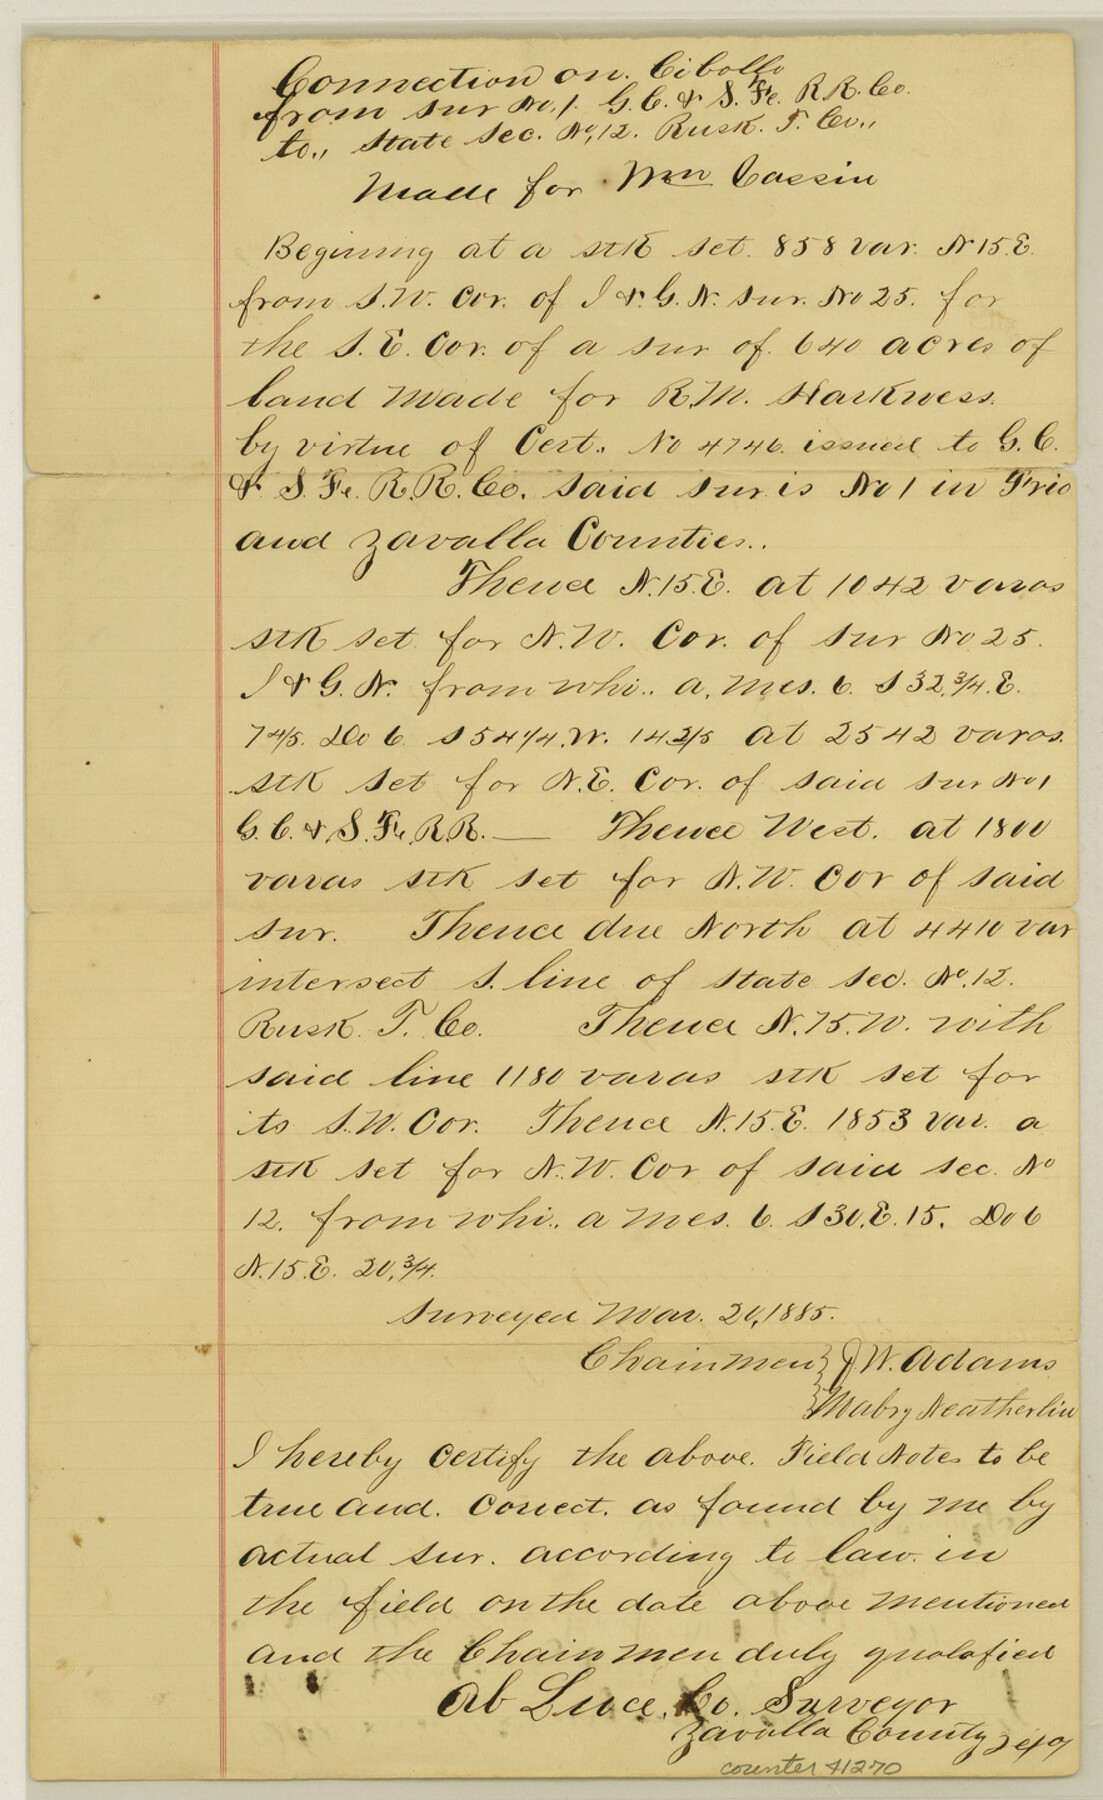 Connection on. Cibollo
from sur No, 1. G. C. & S. Fe. R. R. Co.
to,, state sec. No, 12. Rusk. T. Co.,,
Made for Wm Cassin
Begining at a stk set. 858 var. N 15. E.
from S. W. Cor. of I & G. N. sur. No 25. for
the S. E. Cor. of a sur of. 640 acres of
land made for R. M. Harkness.
by virtue of Cert.. No 4746. issued to G. C.
& S. Fe. R. R. Co. said sur is No 1 in Frio
and Zavalla Counties..
Thence N. 15. E. at 1042 varas
stk set for N. W. Cor. of sur No 25.
I & G. N. from whi.. a. mes. 6. S 32. 3/4. E.
7 4/5. Do 6 S 54 1/4. W. 14. 2/5 at 2542 varas.
stk set for N. E. Cor. of said sur No 1
G. C. & S. Fe, R. R. — Thence West. at 1800
varas stk set for N. W. Cor of said
sur. Thence due North at 4410 var
intersect S. line of state sec. No. 12.
Rusk. T. Co. Thence N. 75. W. with
said line 1180 varas stk set for
its S. W. Cor. Thence N. 15. E. 1853 var. a
stk set for N. W. Cor of said sec. No
12. from whi.. a mes. 6. S 30. E. 15. Do 6
N. 15. E. 20, 3/4.
surveyed Mar. 20, 1885.
Chainmen } J. W. Adams
} Mabry Neatherlin
I hereby certify the above. Field Notes to be
true and. Corect. as found by me by
actual sur. according to law. in
the field on the date above mentioned
and the Chainmen duly qualafied
Ab Luce. Co. Surveyor
Zavalla County
counter 41270